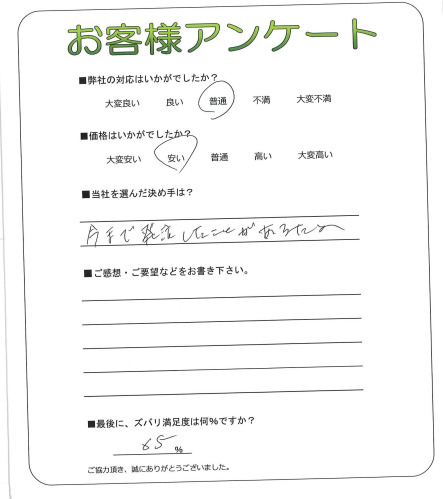 お客様アンケート
■弊社の対応はいかがでしたか？
大変良い 良い 普通 不満 大変不満
■価格はいかがでしたか？
大変安い 安い 普通 高い 大変高い
■当社を選んだ決め手は？
今まで発注したことがあるため
■ご感想・ご要望などをお書き下さい。
■最後に、ズバリ満足度は何%ですか？
65 %
ご協力頂き、誠にありがとうございました。